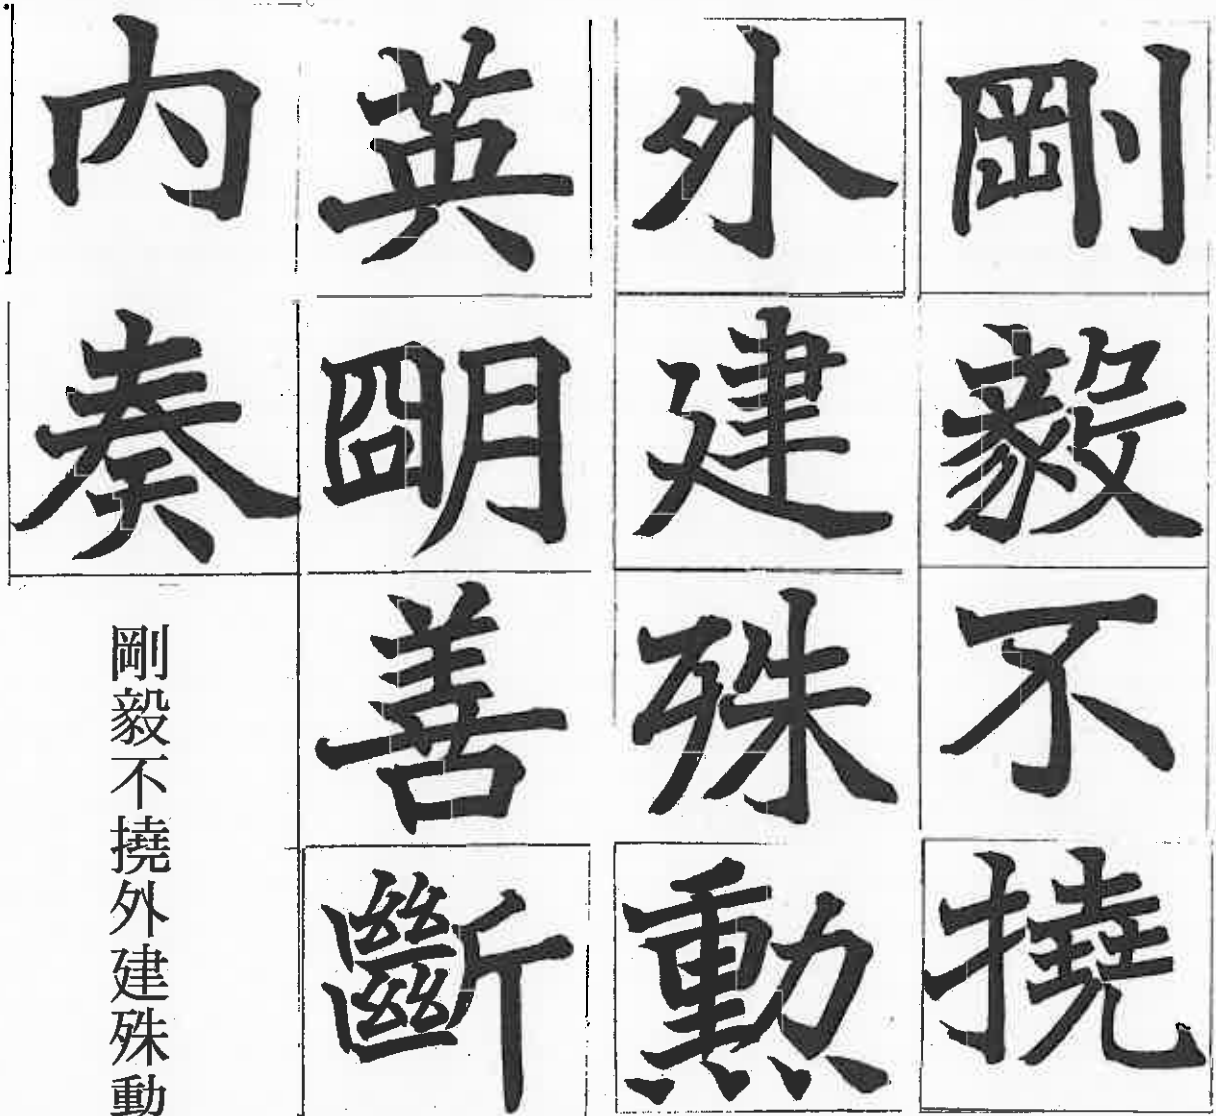 剛毅不撓
外建殊勳
英明善斷
內奏
剛毅不撓外建殊動